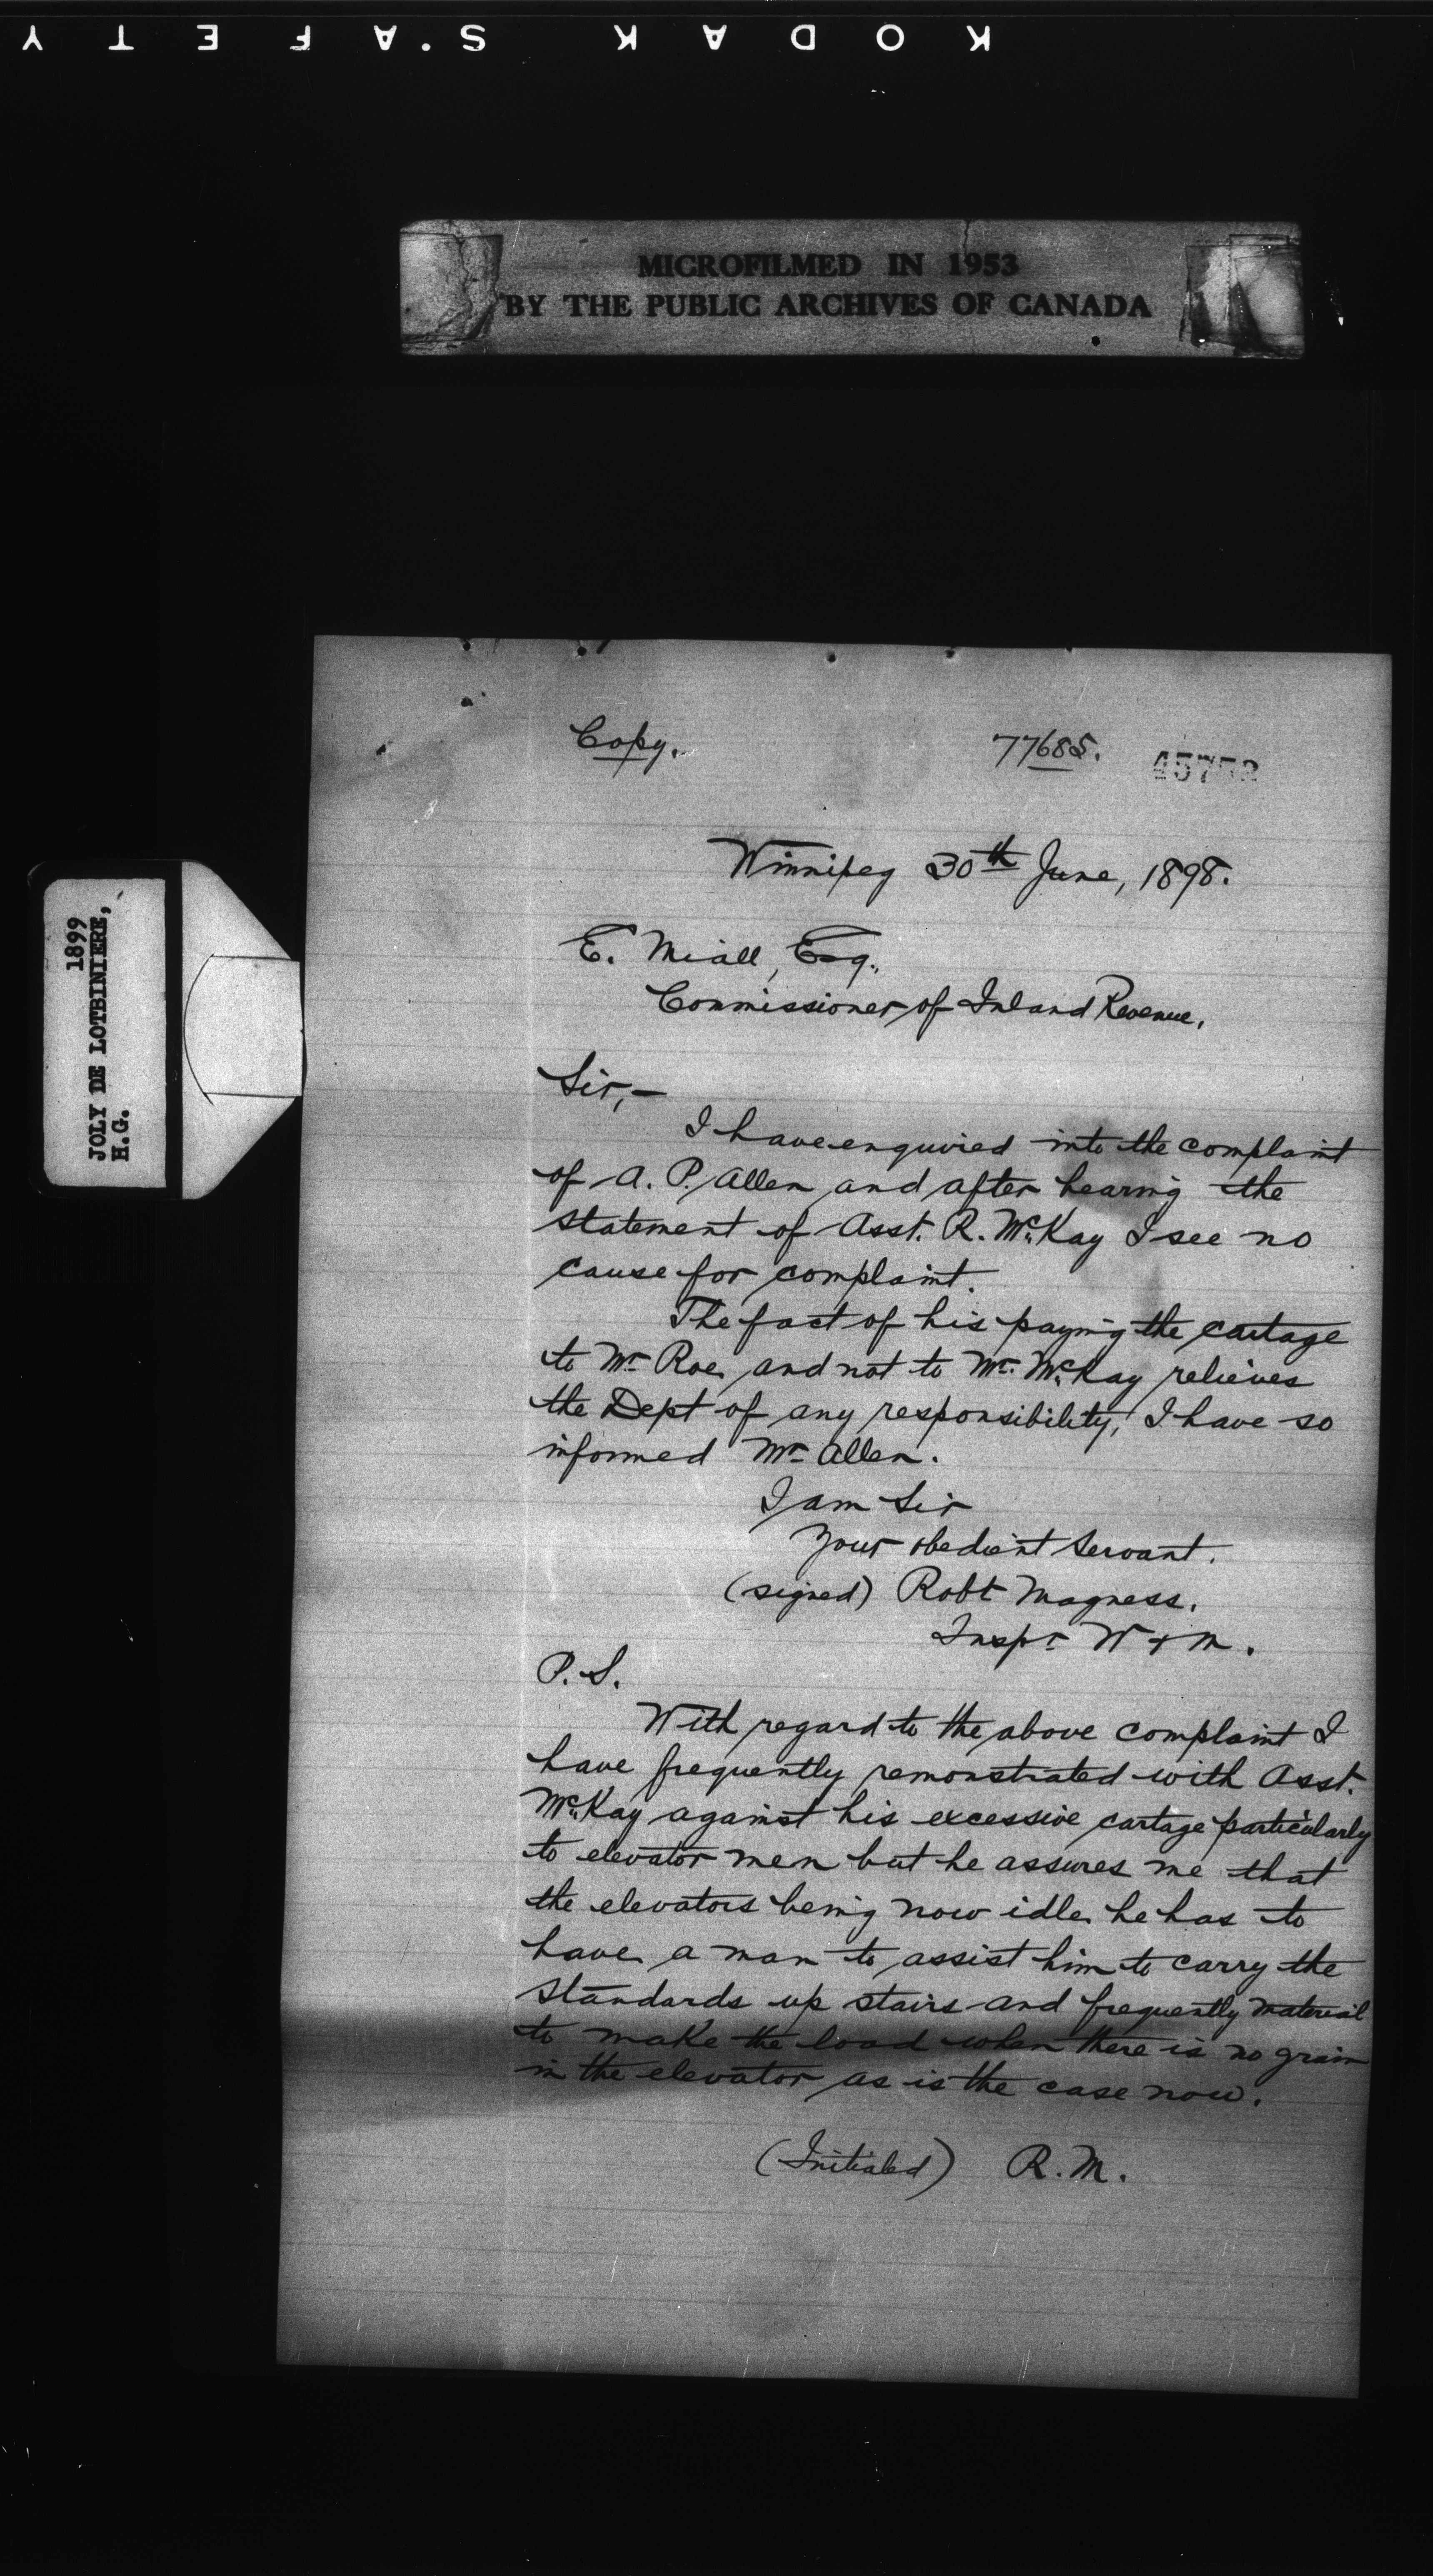 KODAK SAFETY
MICROFILMED IN 1953
BY THE PUBLIC ARCHIVES OF CANADA
1899
JOLY DE LOTBINIERE,
H.G.
Copy. 77685.
Winnipeg 30th June, 1898.
E. Miall, Esq.,
Commissioner of Inland Revenue,
Sir,—
I have enquired into the complaint
of A. P. Allen and after hearing the
statement of Asst. R. McKay I see no
cause for complaint.
The fact of his paying the cartage
to Mr Roe and not to Mr. McKay relieves
the Dept of any responsibility, I have so
informed Mr Allen.
I am Sir
Your obedient Servant.
(signed) Robt Magness.
Inspr W & M.
P.S.
With regard to the above complaint I
have frequently remonstrated with Asst.
McKay against his excessive cartage particularly
to elevator men but he assures me that
the elevators being now idle he has to
have a man to assist him to carry the
standards up stairs and frequently material
to make the load when there is no grain
in the elevator as is the case now.
(Initialed) R.M.